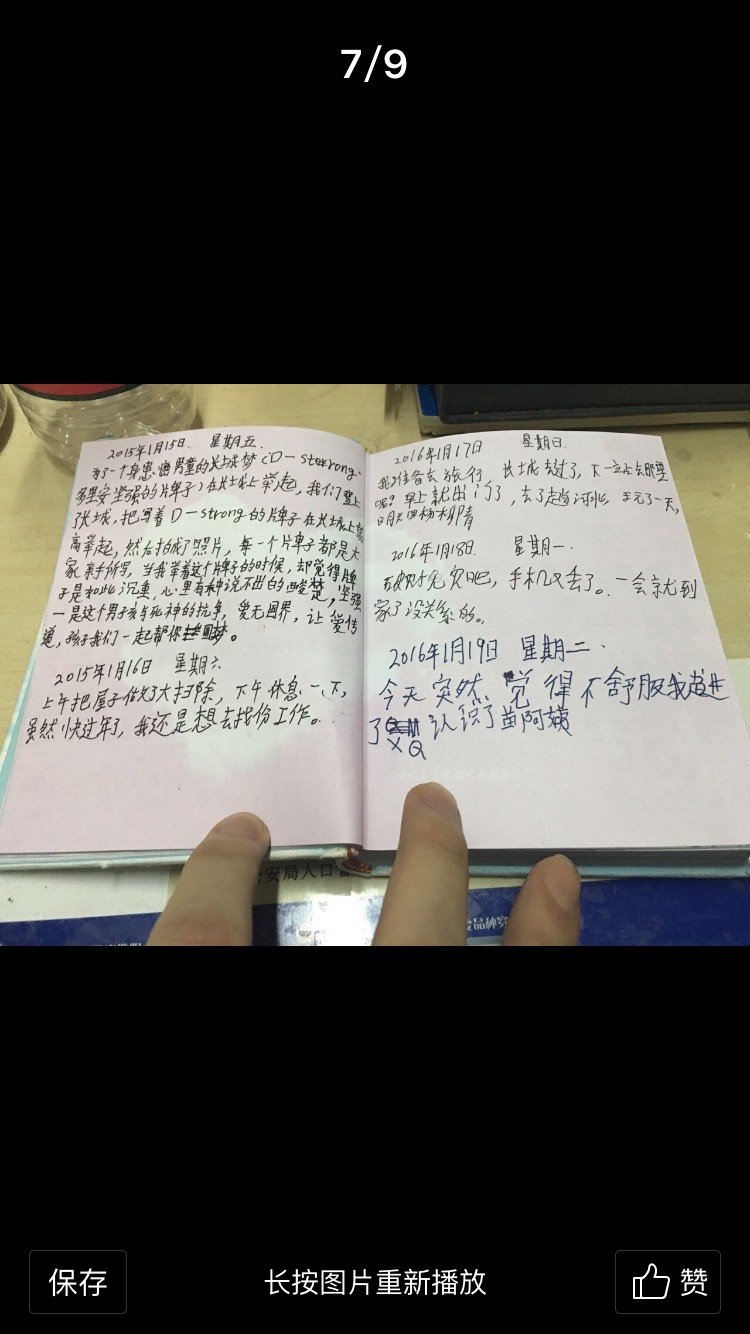 7/9
2015年1月15日 星期五.
为了一个身患癌男童的长城梦(D-sterong.
多里安坚强的片牌子)在长城上举起,我们登上
了长城,把写着D-strong的片牌子在长城上高
高举起,然后拍成了照片,每一个片牌子都是大
家亲手所写,当我举着这个牌子的时候,却觉得牌
子是如此沉重,心里有种说不出的酸楚,坚强
一是这个男孩与死神的抗争,爱无国界,让爱传
道,孩子我们一起帮你圆梦。
2015年1月16日 星期六
上午把屋子做了大扫除,下午休息一下,
虽然快过年了,我还是想去找份工作。
2016年1月17日 星期日.
我准备去旅行 长城去过了,下一站去那里
呢?早上就出门了,去了趟河北 玩了一天,
明天回杨柳青
2016年1月18日. 星期一.
破财免灾吧,手机又丢了。一会就到
家了没关系的。
2016年1月19日 星期二.
今天突然觉得不舒服我进
了 认识了苗阿姨
XQ
安局人口
品种
保存
长按图片重新播放
赞